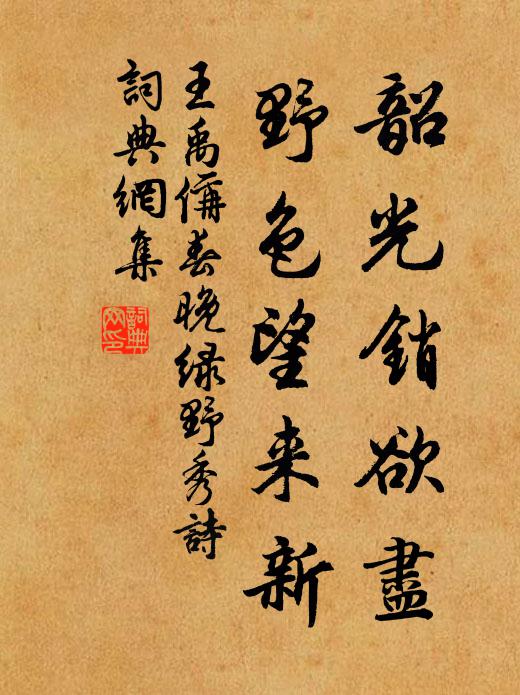 韶光銷欲盡
野色望来新
王禹偁春晚绿野秀詩
詞典網集
詞典網印